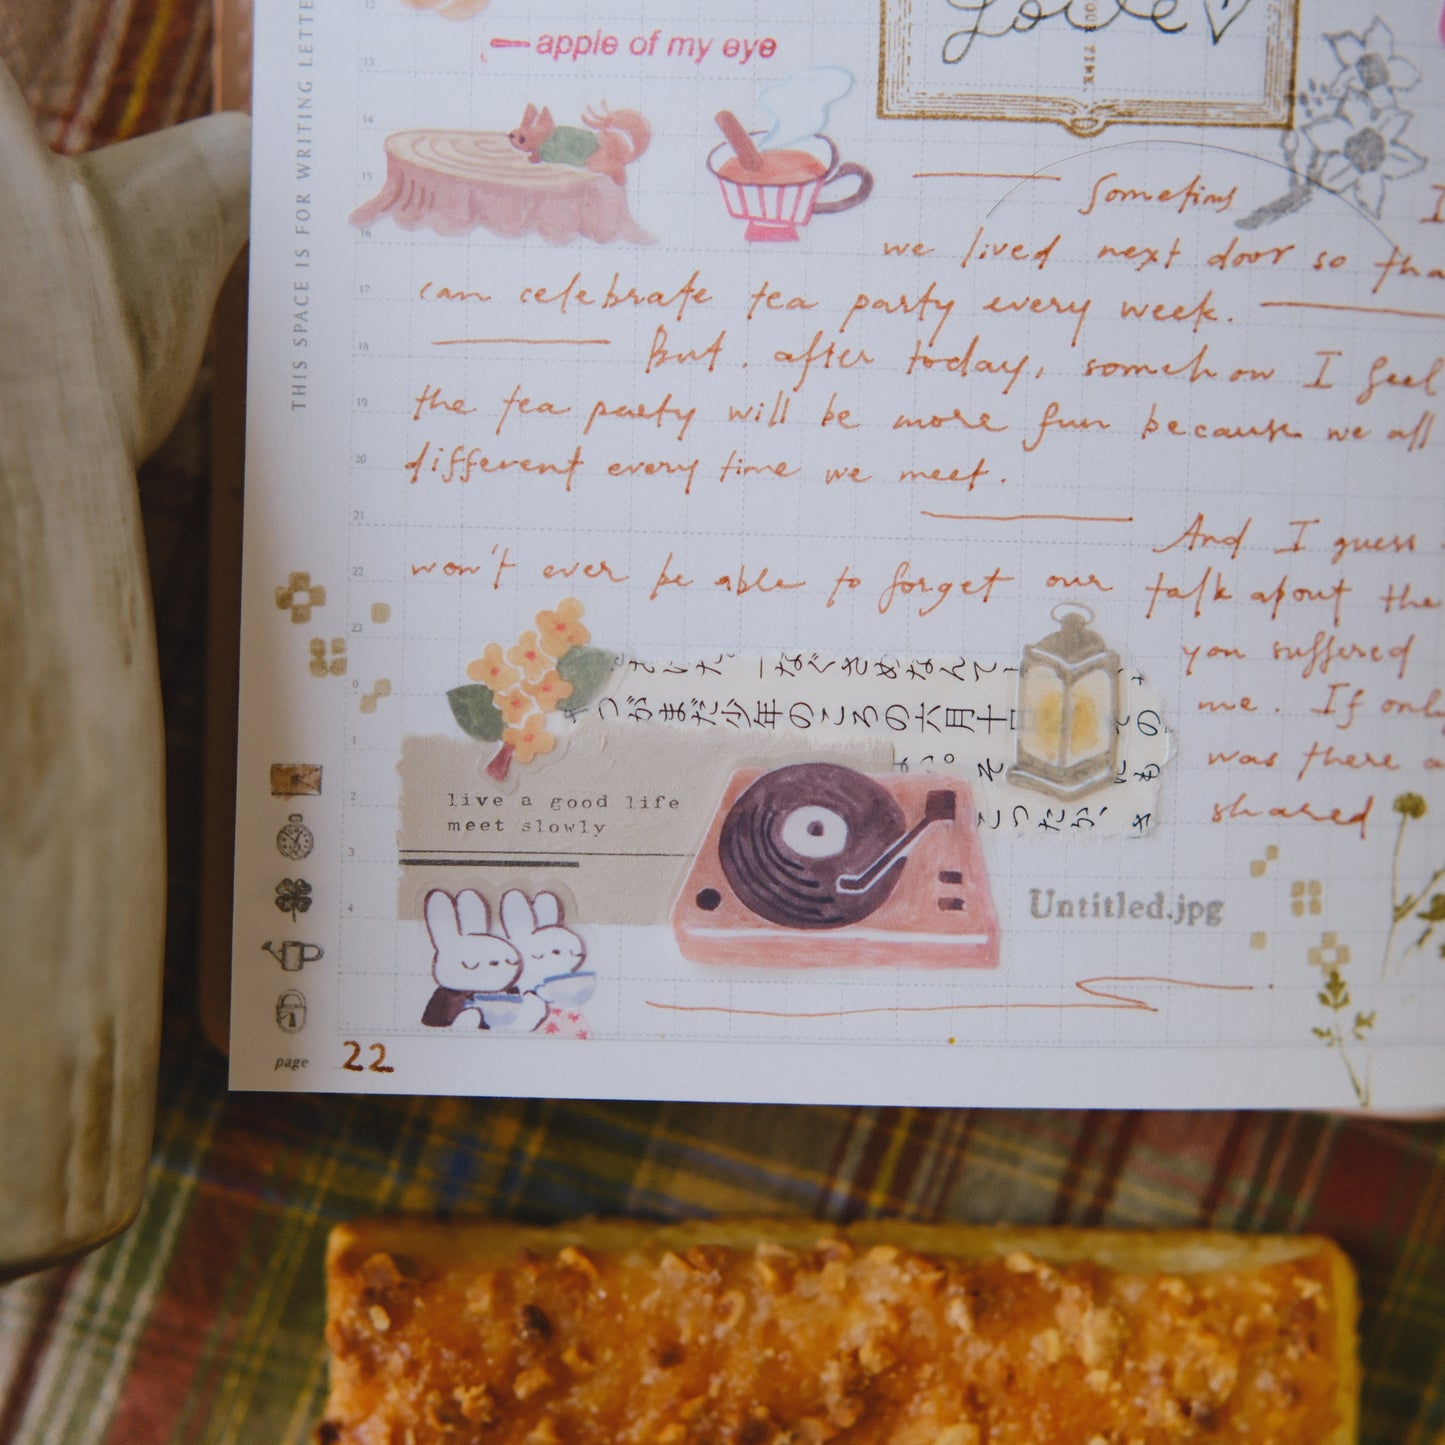 Love
YOUR TIME.
apple of my eye
THIS SPACE IS FOR WRITING LETTE
12
13
14
15
16
17
18
19
20
21
22
23
0
1
2
3
4
Sometims I
we lived next door so tha
can celebrate tea party every week.
But, after today, somehow I feel
the tea party will be more fun because we all
different every time we meet.
And I guess
won't ever be able to forget our talk about the
you suffered
me. If only
was there a
shared
一なべさめなんて
つがまだ少年のころの六月十
live a good life
meet slowly
Untitled.jpg
page 22